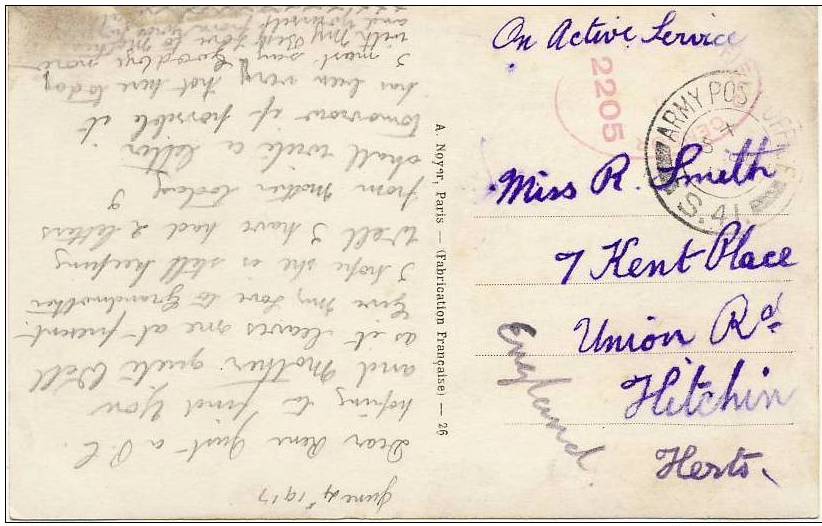 June 4th 1917
Dear Rene Just a P.C.
hoping to find you
and Mother quite Well
as it leaves me at present.
Give My Love to Grandmother
I hope she is still keeping
Well I have had 2 letters
from Mother today I
shall write a letter
tomorrow if possible it
has been very hot here today
I must say Goodbye now
with My Best Love to Mother
and yourself from
A. Noyer, Paris — (Fabrication Française) — 26
On Active Service
2205
ARMY POST OFFICE
S.41.
Miss R. Smith
7 Kent Place
Union Rd
Hitchin
Herts.
England.